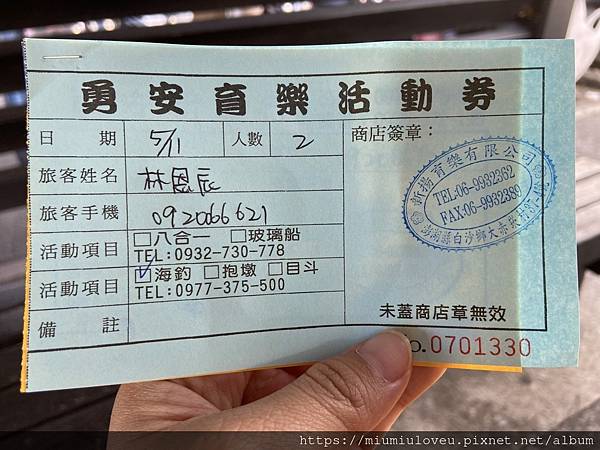 勇安育樂活動券
日期 5/11 人數 2 商店簽章：
旅客姓名 林恩辰
旅客手機 092066621
活動項目 □八合一 □玻璃船
TEL:0932-730-778
活動項目 ☑海釣 □抱墩 □目斗
TEL:0977-375-500
備註
新揚育樂有限公司
TEL:06-9932362
FAX:06-9932389
澎湖縣白沙鄉大赤崁村
未蓋商店章無效
No.0701330
https://miumiuloveu.pixnet.net/album